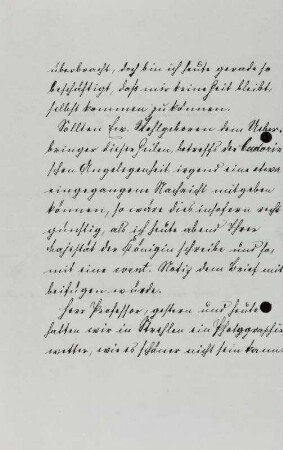 überbracht, doch bin ich heute gerade so
beschäftigt, daß mir keine Zeit bleibt,
selbst kommen zu können.
Sollten Ew. Wohlgeboren dem Ueber-
bringer dieser Zeilen, betreffs der
schen Angelegenheit irgend eine etwa
eingegangene Nachricht mitgeben
können, so wäre dies insofern recht
günstig, als ich heute abend Ihrer
Majestät der Königin schreibe und so-
mit eine event. Notiz dem Brief mit
beifügen würde.
Herr Professor, gestern und heute
hatten wir in Strehlen ein Photographir-
wetter, wie es schöner nicht sein kann.